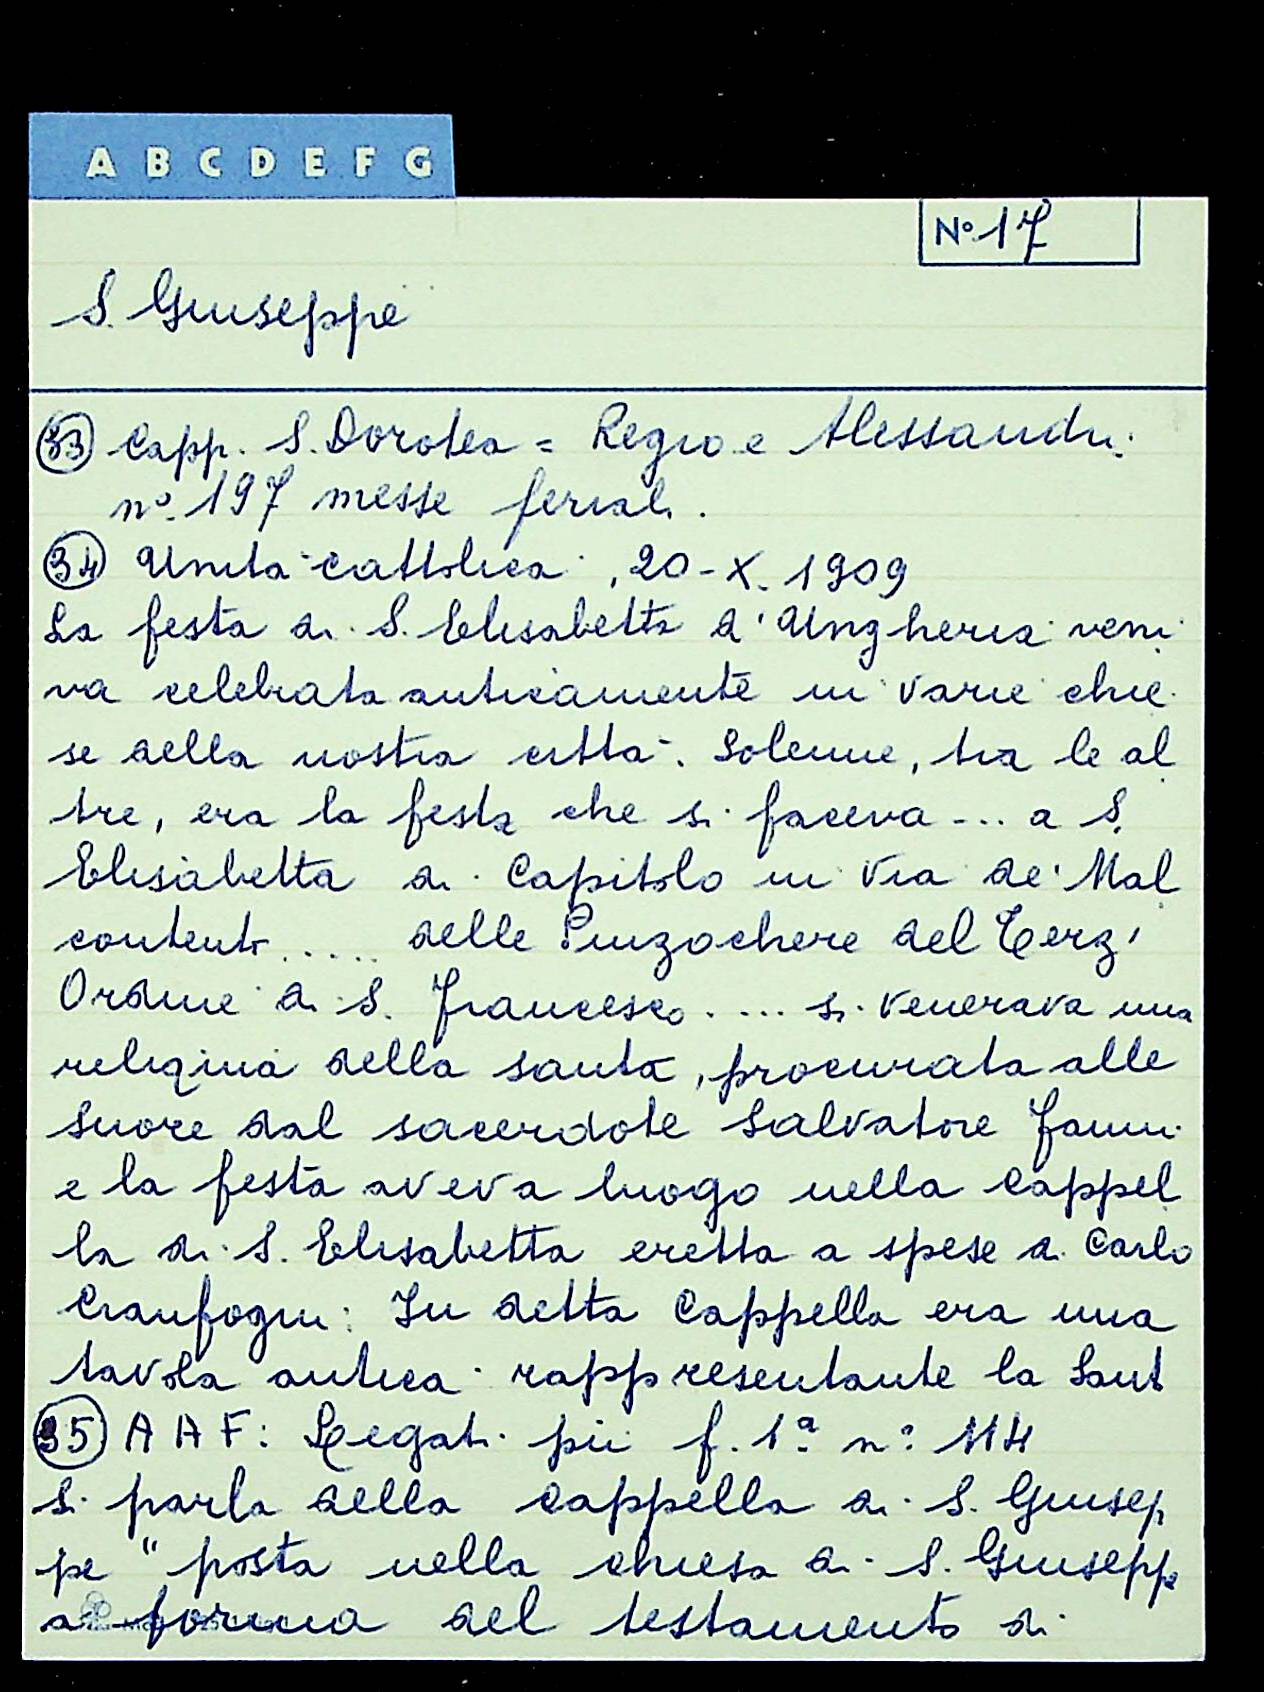 A B C D E F G
No 17
S. Giuseppe
33 Capp. S. Dorotea = Regio e Alessandri
no. 197 messe feriali.
34 Unità Cattolica, 20-X-1909
La festa di S. Elisabetta d'Ungheria veni
va celebrata anticamente in varie chie
se della nostra città. Solenne, tra le al
tre, era la festa che si faceva ... a S.
Elisabetta di Capitolo in Via de' Mal
contenti ..... delle Pinzochere del Terz'
Ordine di S. Francesco .... si venerava una
reliquia della santa, procurata alle
Suore dal sacerdote Salvatore Fanni
e la festa aveva luogo nella cappel
la di S. Elisabetta eretta a spese di Carlo
In detta Cappella era una
tavola antica rappresentante la Sant
35 A A F: Legati pii f. 1a no 114
Si parla della cappella di S. Giusep
pe "posta nella chiesa di S. Giuseppe
a forma del testamento di